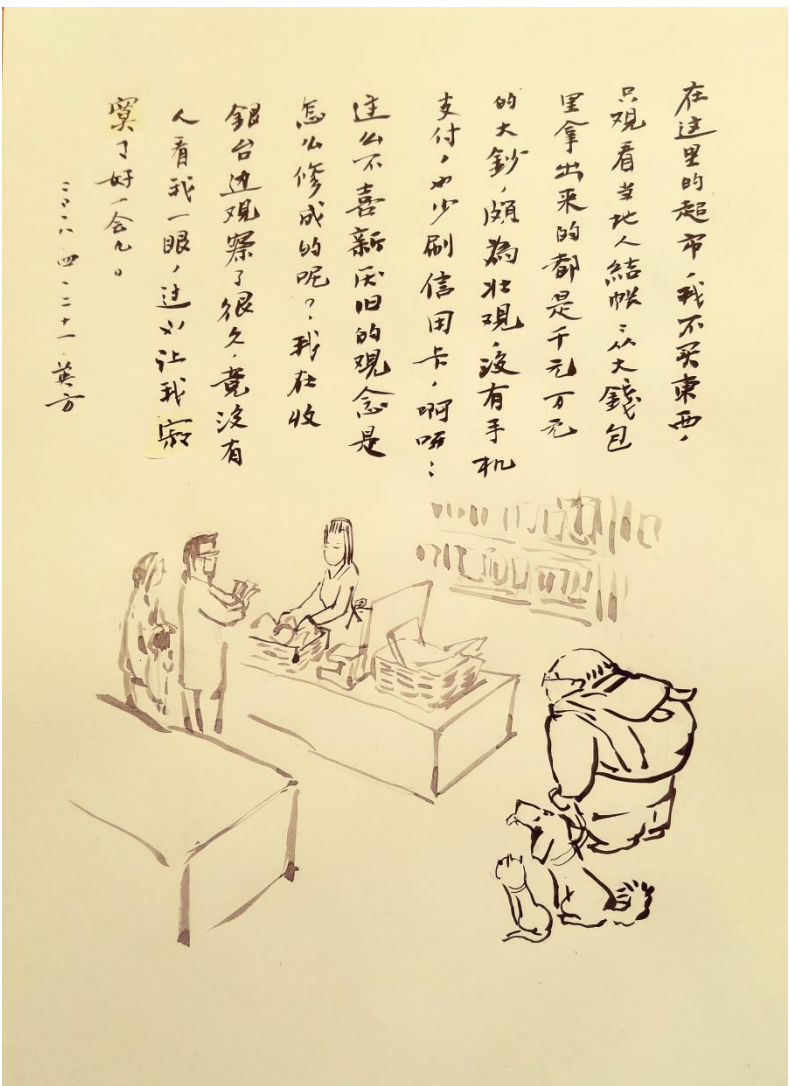 在这里的超市，我不买東西，
只观看当地人結帐：从大錢包
里拿出来的都是千元万元
的大鈔，頗為壮观，没有手机
支付，也少刷信用卡，啊呀：
这么不喜新厌旧的观念是
怎么修成的呢？我在收
銀台边观察了很久，竟没有
人看我一眼，这从让我寂
寞了好一会儿。
二〇一八·四·二十一 英方